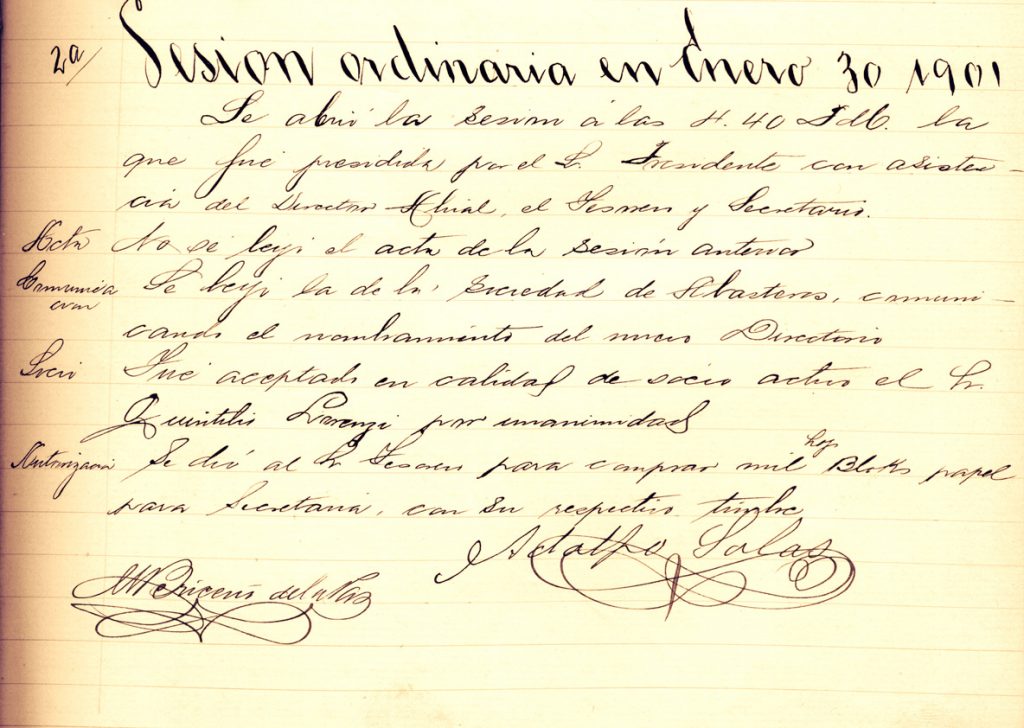 2ª/ Sesion ordinaria en Enero 30 1901
Se abrió la sesion á las la
que fué presidida por el Sr. Presidente con asisten-
cia del Director Abrial, el Tesorero y Secretario.
Acta No se leyó el acta de la sesión anterior
Comunica
cion Se leyó la de la Sociedad de Abasteros, comuni-
cando el nombramiento del nuevo Directorio
Socio Fué aceptado en calidad de socio activo el Sr.
Quintilio Lorenzi por unanimidad
hojs
Autorizacion Se dió al Sr Tesorero para comprar mil Bloks papel
para Secretaria, con su respectivo timbre
Adolfo Salas
Briceño de la